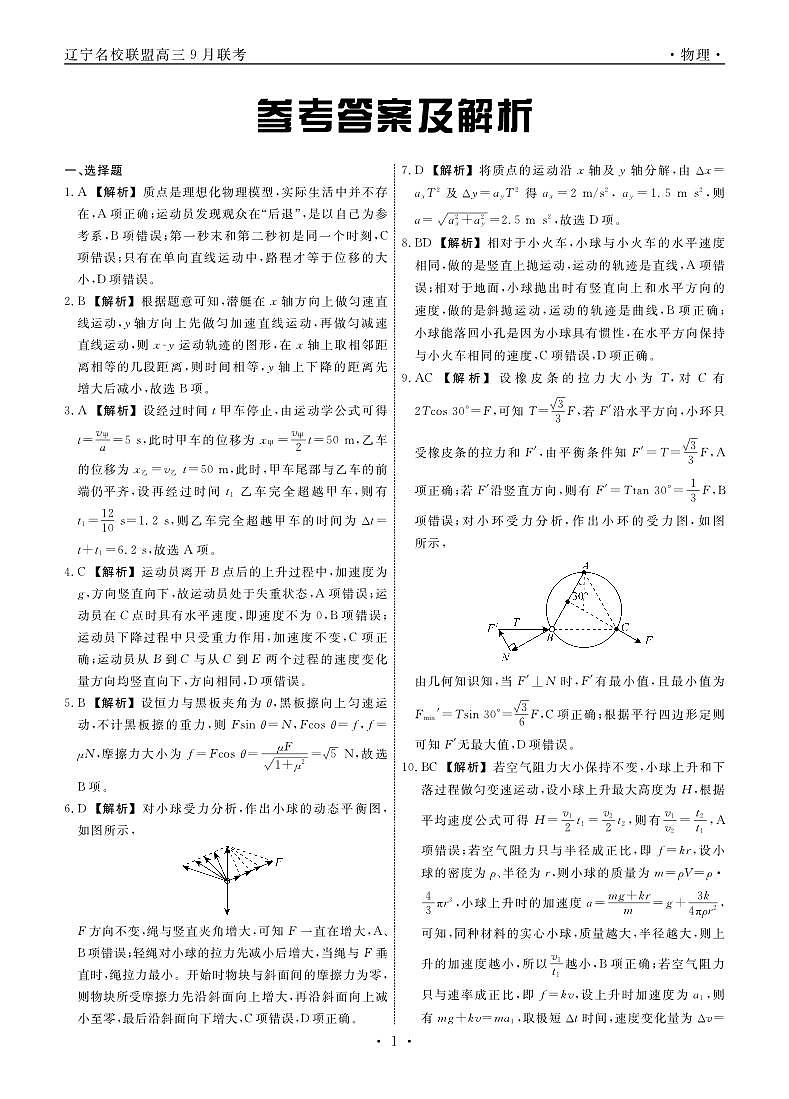 辽宁名校联盟高三9月联考
·物理·
参考答案及解析
一、选择题
1. A 【解析】质点是理想化物理模型,实际生活中并不存
在,A项正确;运动员发现观众在“后退”,是以自己为参
考系,B项错误;第一秒末和第二秒初是同一个时刻,C
项错误;只有在单向直线运动中,路程才等于位移的大
小,D项错误。
2. B 【解析】根据题意可知,潜艇在 x 轴方向上做匀速直
线运动,y轴方向上先做匀加速直线运动,再做匀减速
直线运动,则 x-y 运动轨迹的图形,在 x 轴上取相邻距
离相等的几段距离,则时间相等,y 轴上下降的距离先
增大后减小,故选 B 项。
3. A 【解析】设经过时间 t 甲车停止,由运动学公式可得
t=v甲/a=5 s,此时甲车的位移为 x甲=v甲/2 t=50 m,乙车
的位移为 x乙=v乙 t=50 m,此时,甲车尾部与乙车的前
端仍平齐,设再经过时间 t₁ 乙车完全超越甲车,则有
t₁=12/10 s=1.2 s,则乙车完全超越甲车的时间为 Δt=
t+t₁=6.2 s,故选 A 项。
4. C 【解析】运动员离开 B 点后的上升过程中,加速度为
g,方向竖直向下,故运动员处于失重状态,A 项错误;运
动员在 C 点时具有水平速度,即速度不为 0,B 项错误;
运动员下降过程中只受重力作用,加速度不变,C 项正
确;运动员从 B 到 C 与从 C 到 E 两个过程的速度变化
量方向均竖直向下,方向相同,D 项错误。
5. B 【解析】设恒力与黑板夹角为 θ,黑板擦向上匀速运
动,不计黑板擦的重力,则 Fsin θ=N,Fcos θ=f,f=
μN,摩擦力大小为 f=Fcos θ=μF/√(1+μ²)=√5 N,故选
B 项。
6. D 【解析】对小球受力分析,作出小球的动态平衡图,
如图所示,
F
F 方向不变,绳与竖直夹角增大,可知 F 一直在增大,A、
B 项错误;轻绳对小球的拉力先减小后增大,当绳与 F 垂
直时,绳拉力最小。开始时物块与斜面间的摩擦力为零,
则物块所受摩擦力先沿斜面向上增大,再沿斜面向上减
小至零,最后沿斜面向下增大,C 项错误,D 项正确。
7. D 【解析】将质点的运动沿 x 轴及 y 轴分解,由 Δx=
aₓT² 及 Δy=a_yT² 得 aₓ=2 m/s², a_y=1.5 m s²,则
a=√(aₓ²+a_y²)=2.5 m s²,故选 D 项。
8. BD 【解析】相对于小火车,小球与小火车的水平速度
相同,做的是竖直上抛运动,运动的轨迹是直线,A 项错
误;相对于地面,小球抛出时有竖直向上和水平方向的
速度,做的是斜抛运动,运动的轨迹是曲线,B 项正确;
小球能落回小孔是因为小球具有惯性,在水平方向保持
与小火车相同的速度,C 项错误,D 项正确。
9. AC 【解析】设橡皮条的拉力大小为 T,对 C 有
2Tcos 30°=F,可知 T=√3/3 F,若 F′沿水平方向,小环只
受橡皮条的拉力和 F′,由平衡条件知 F′=T=√3/3 F,A
项正确;若 F′沿竖直方向,则有 F′=Ttan 30°=1/3 F,B
项错误;对小环受力分析,作出小环的受力图,如图
所示,
A
30°
F′ T B C F
N
由几何知识知,当 F′⊥N 时,F′有最小值,且最小值为
Fmin′=Tsin 30°=√3/6 F,C 项正确;根据平行四边形定则
可知 F′无最大值,D 项错误。
10. BC 【解析】若空气阻力大小保持不变,小球上升和下
落过程做匀变速运动,设小球上升最大高度为 H,根据
平均速度公式可得 H=v₁/2 t₁=v₂/2 t₂,则有 v₁/v₂=t₂/t₁,A
项错误;若空气阻力只与半径成正比,即 f=kr,设小
球的密度为 ρ、半径为 r,则小球的质量为 m=ρV=ρ·
4/3 πr³,小球上升时的加速度 a=(mg+kr)/m=g+3k/(4πρr²),
可知,同种材料的实心小球,质量越大,半径越大,则上
升的加速度越小,所以 v₁/t₁ 越小,B 项正确;若空气阻力
只与速率成正比,即 f=kv,设上升时加速度为 a₁,则
有 mg+kv=ma₁,取极短 Δt 时间,速度变化量为 Δv=
· 1 ·